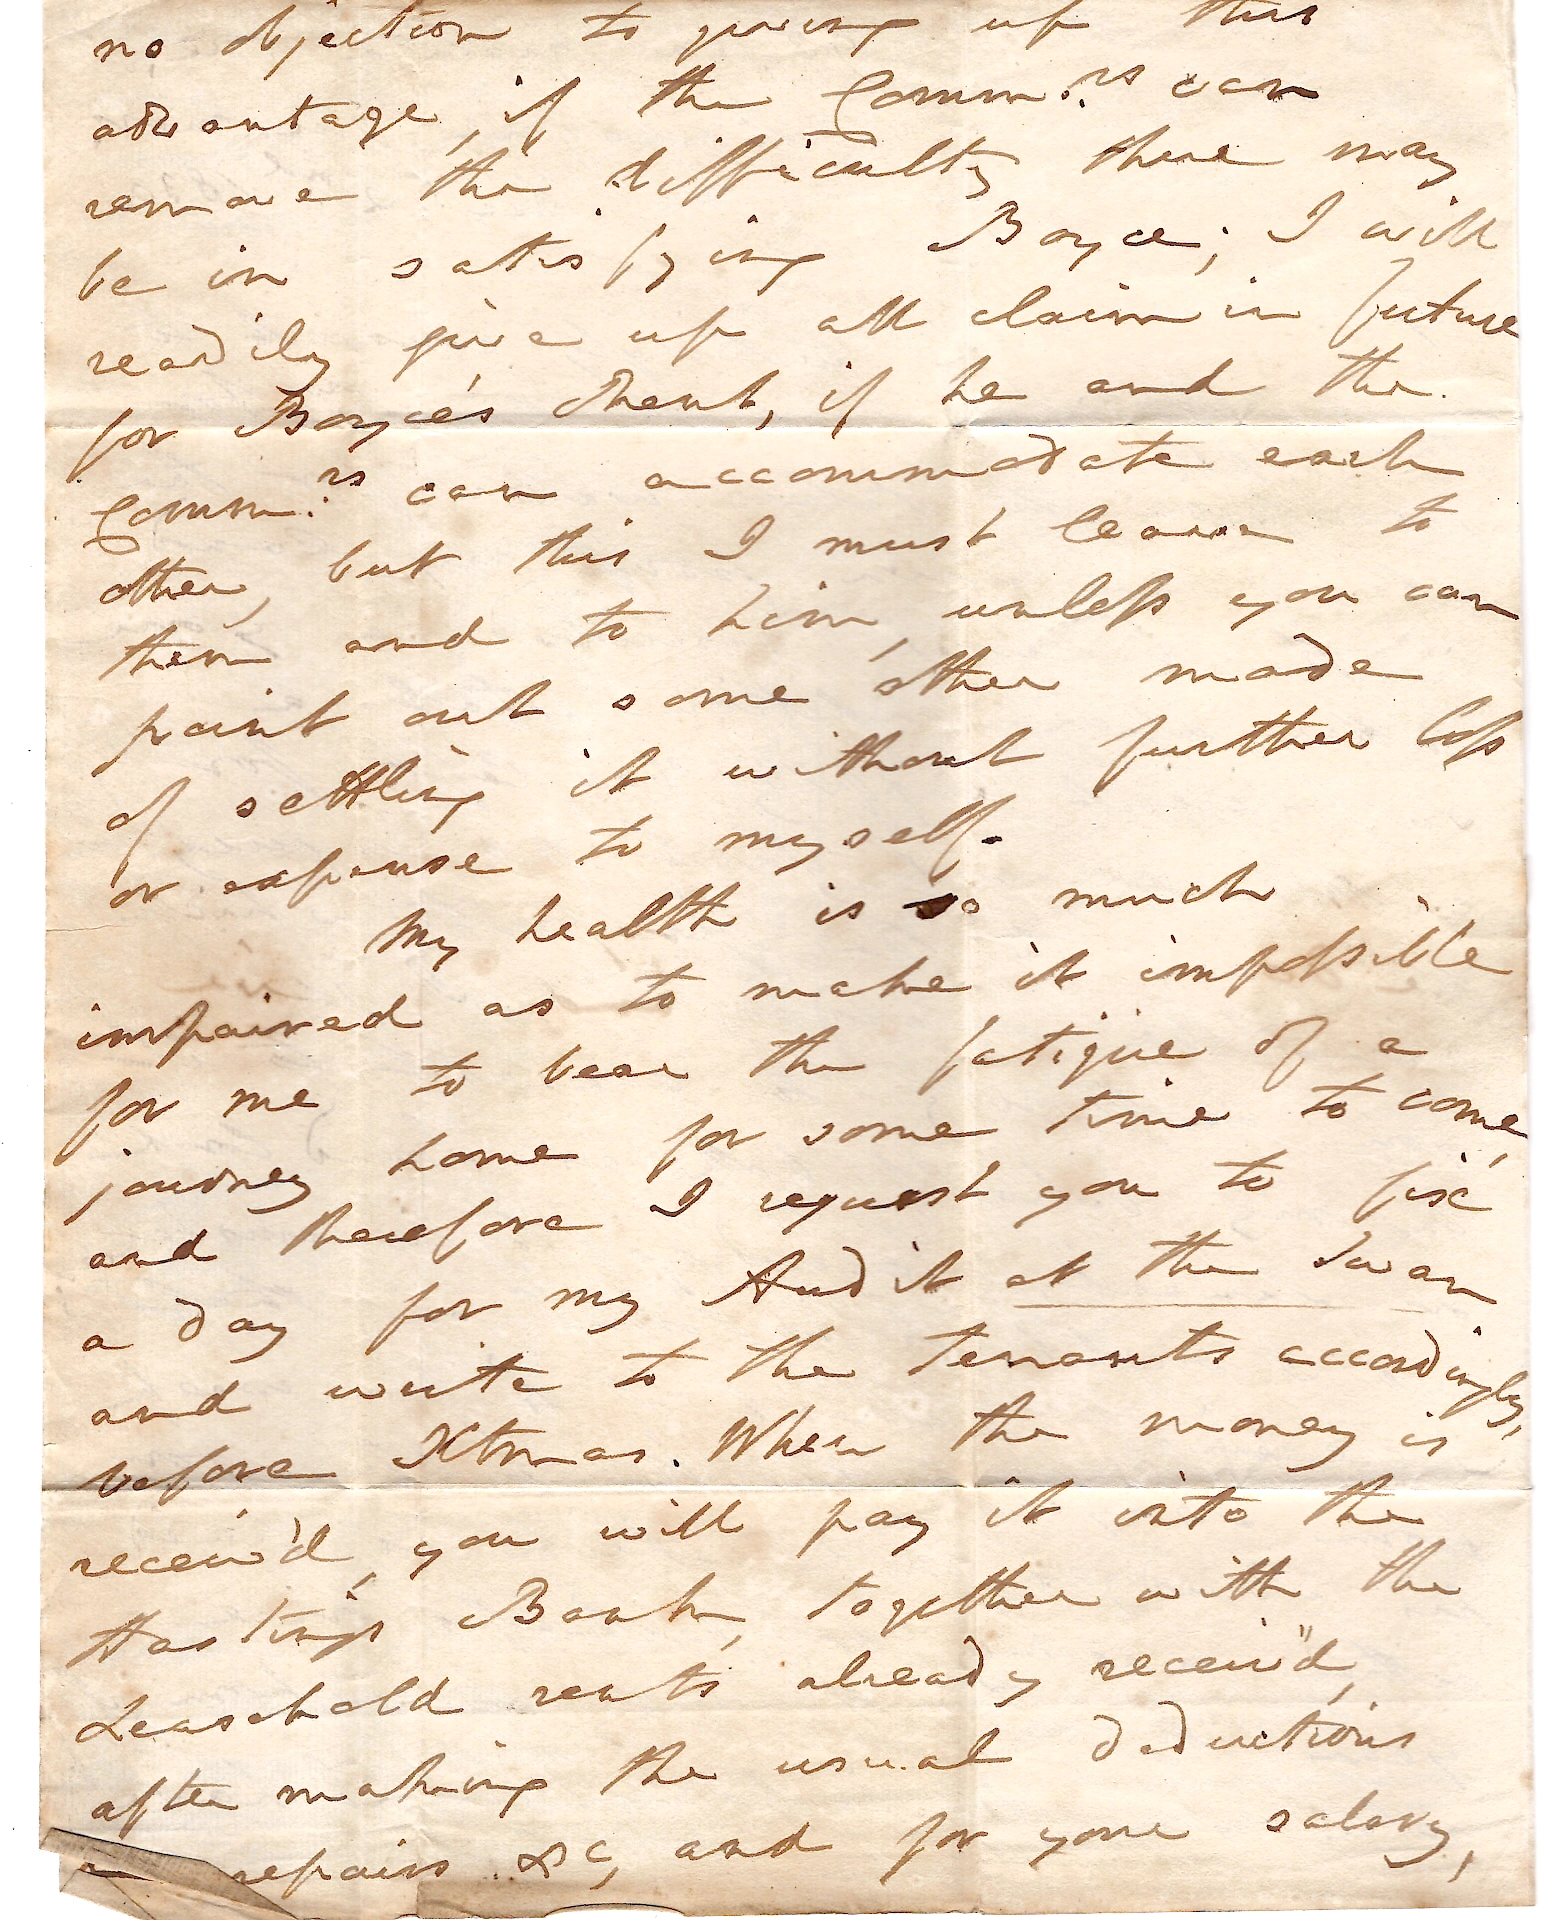 no objection to giving up this
advantage, if the Comm.rs can
remove the difficulty there may
be in satisfying Boyce; I will
readily give up all claim in future
for Boyce's Rent, if he and the
Comm.rs can accommodate each
other, but this I must leave to
them and to him, unless you can
point out some other mode
of settling it without further loss
or expense to myself.
My health is so much
impaired as to make it impossible
for me to bear the fatigue of a
journey home for some time to come,
and therefore I request you to fix
a day for my Audit at the Swan
and write to the tenants accordingly,
before Xtmas. When the money is
receiv'd, you will pay it into the
Hastings Bank, together with the
Leasehold rents already receiv'd,
after making the usual deductions
repairs &c, and for your salary,